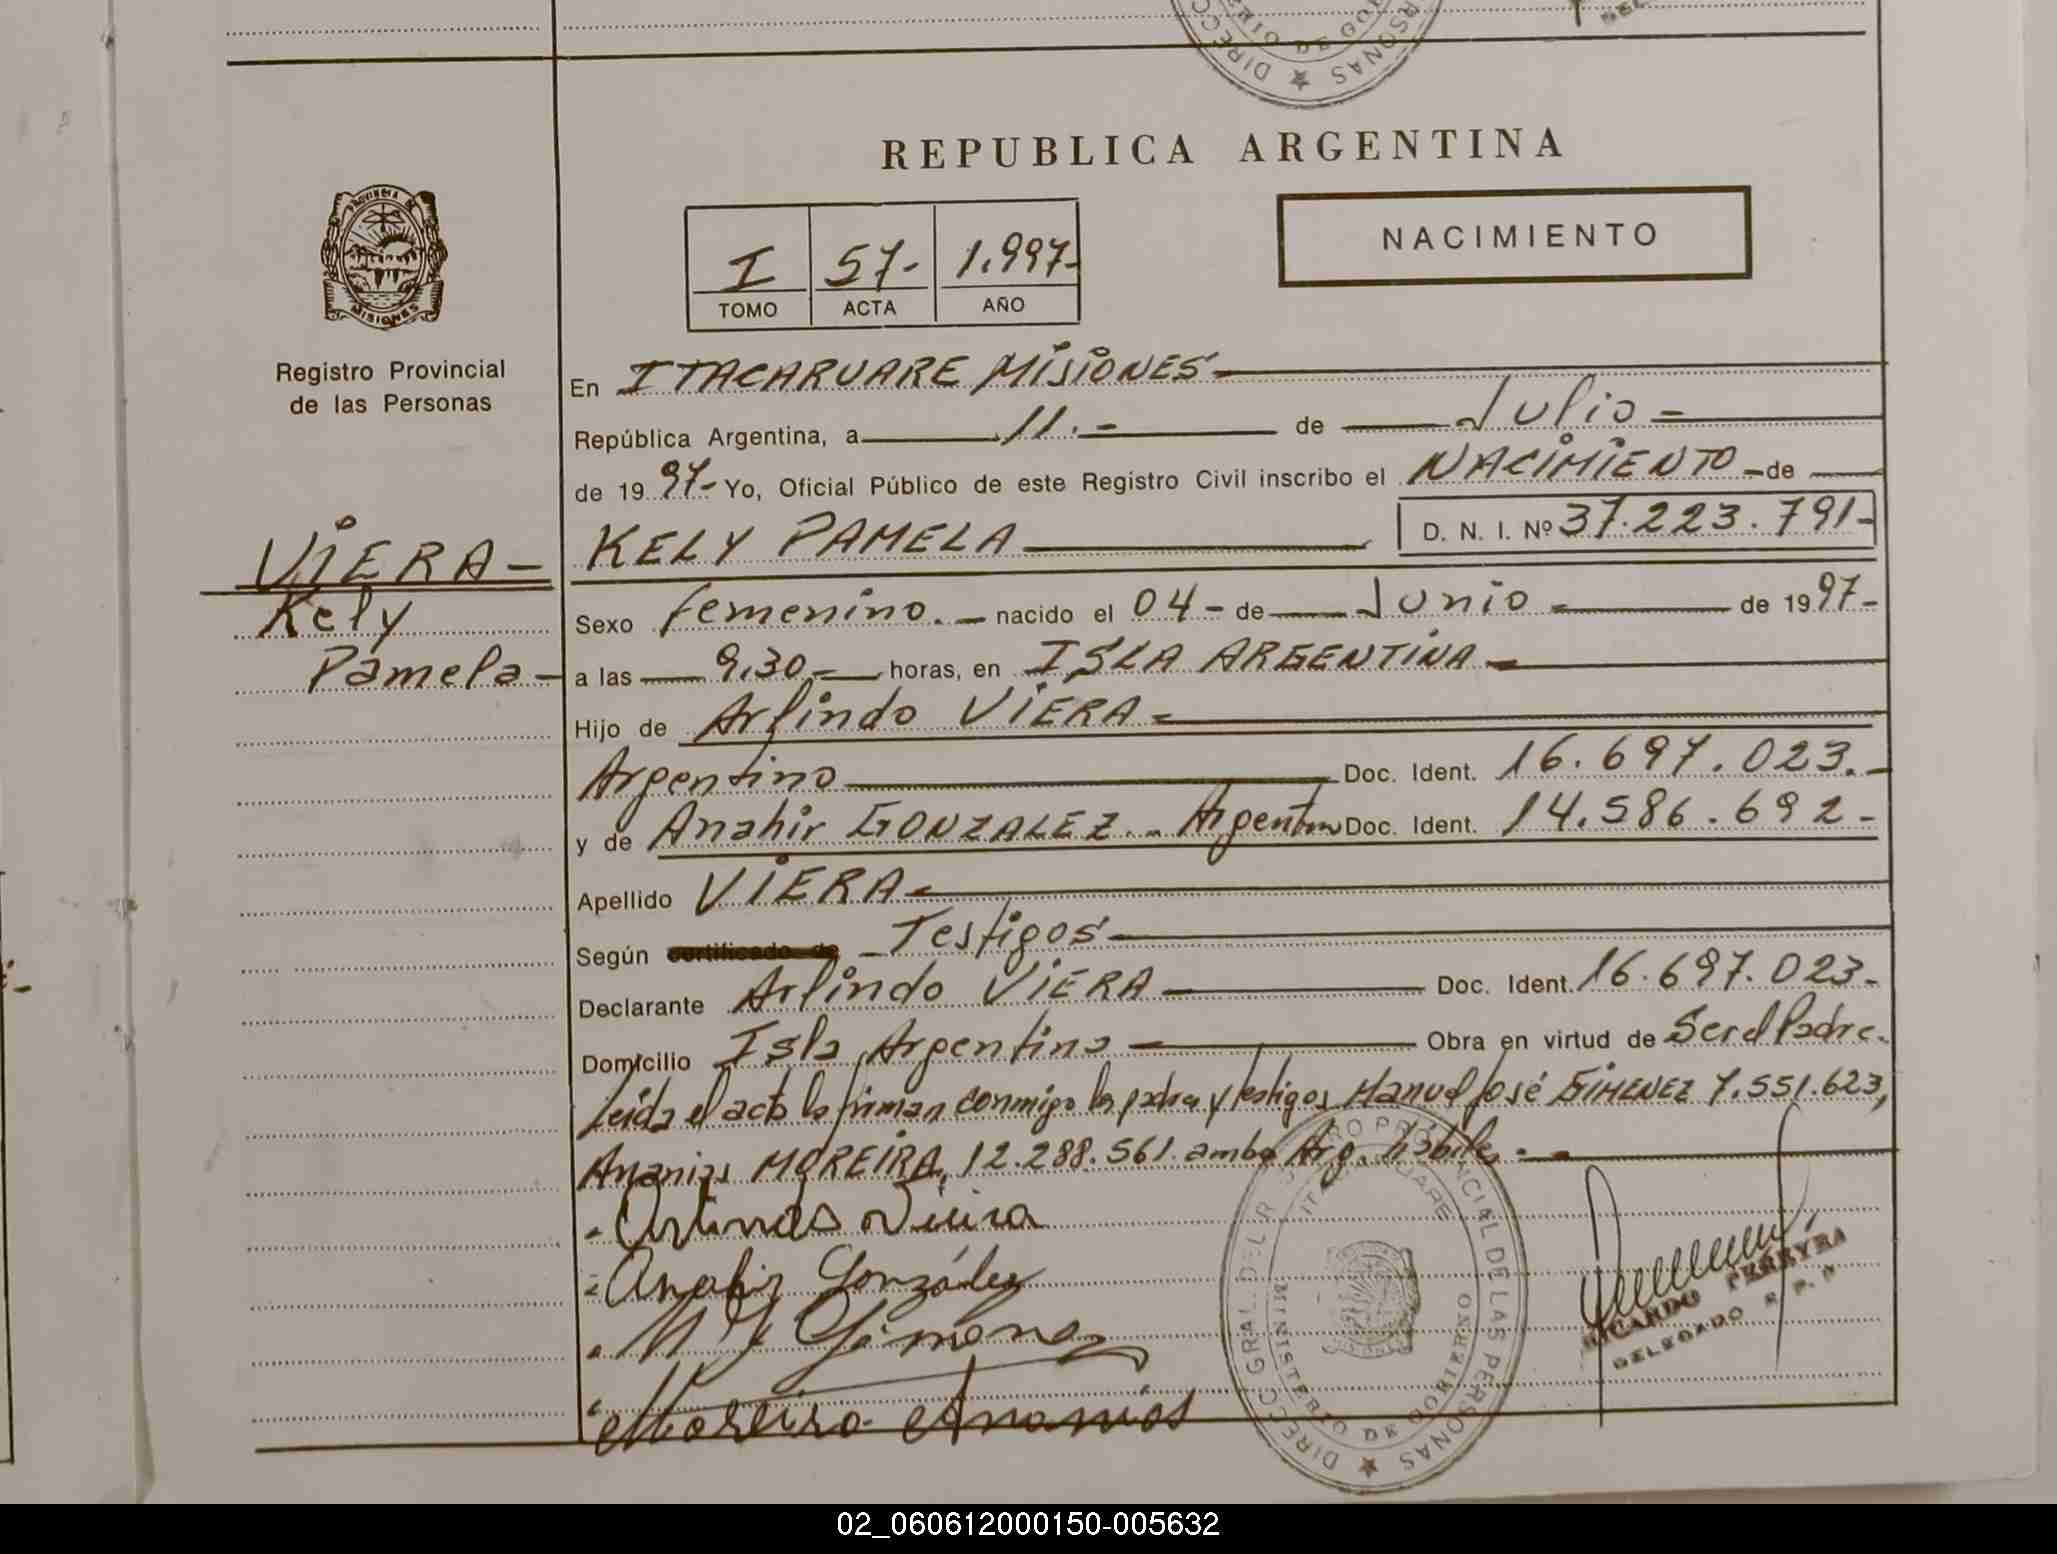 REPUBLICA ARGENTINA
NACIMIENTO
I 57- 1.997-
TOMO ACTA AÑO
PROVINCIA DE
MISIONES
Registro Provincial
de las Personas
VIERA-
Kely
Pamela-
En ITACARUARE MISIONES-
República Argentina, a 11.- de Julio-
de 19 97- Yo, Oficial Público de este Registro Civil inscribo el NACIMIENTO - de
KELY PAMELA D. N. I. Nº 37.223.791-
Sexo femenino.- nacido el 04- de Junio- de 19 97-
a las 9,30- horas, en ISLA ARGENTINA-
Hijo de Arlindo VIERA-
Argentino Doc. Ident. 16.697.023.-
y de Anahir GONZALEZ.- Argentina Doc. Ident. 14.586.692-
Apellido VIERA-
Según certificado de - Testigos-
Declarante Arlindo VIERA- Doc. Ident. 16.697.023-
Domicilio Isla Argentina- Obra en virtud de Ser el Padre.
Leída el acta la firman conmigo los padres y testigos Manuel José GIMENEZ 7.551.623,
Ananias MOREIRA, 12.288.561. ambos Arg. hábiles.-
Arlindo Vieira
Anahir González
M J Gimenez
Moreira Ananias
DIRECC. GRAL. DEL REGISTRO PROVINCIAL DE LAS PERSONAS
ITACARUARE
MINISTERIO DE GOBIERNO
RICARDO FERREYRA
DELEGADO R. P. P.
02_060612000150-005632